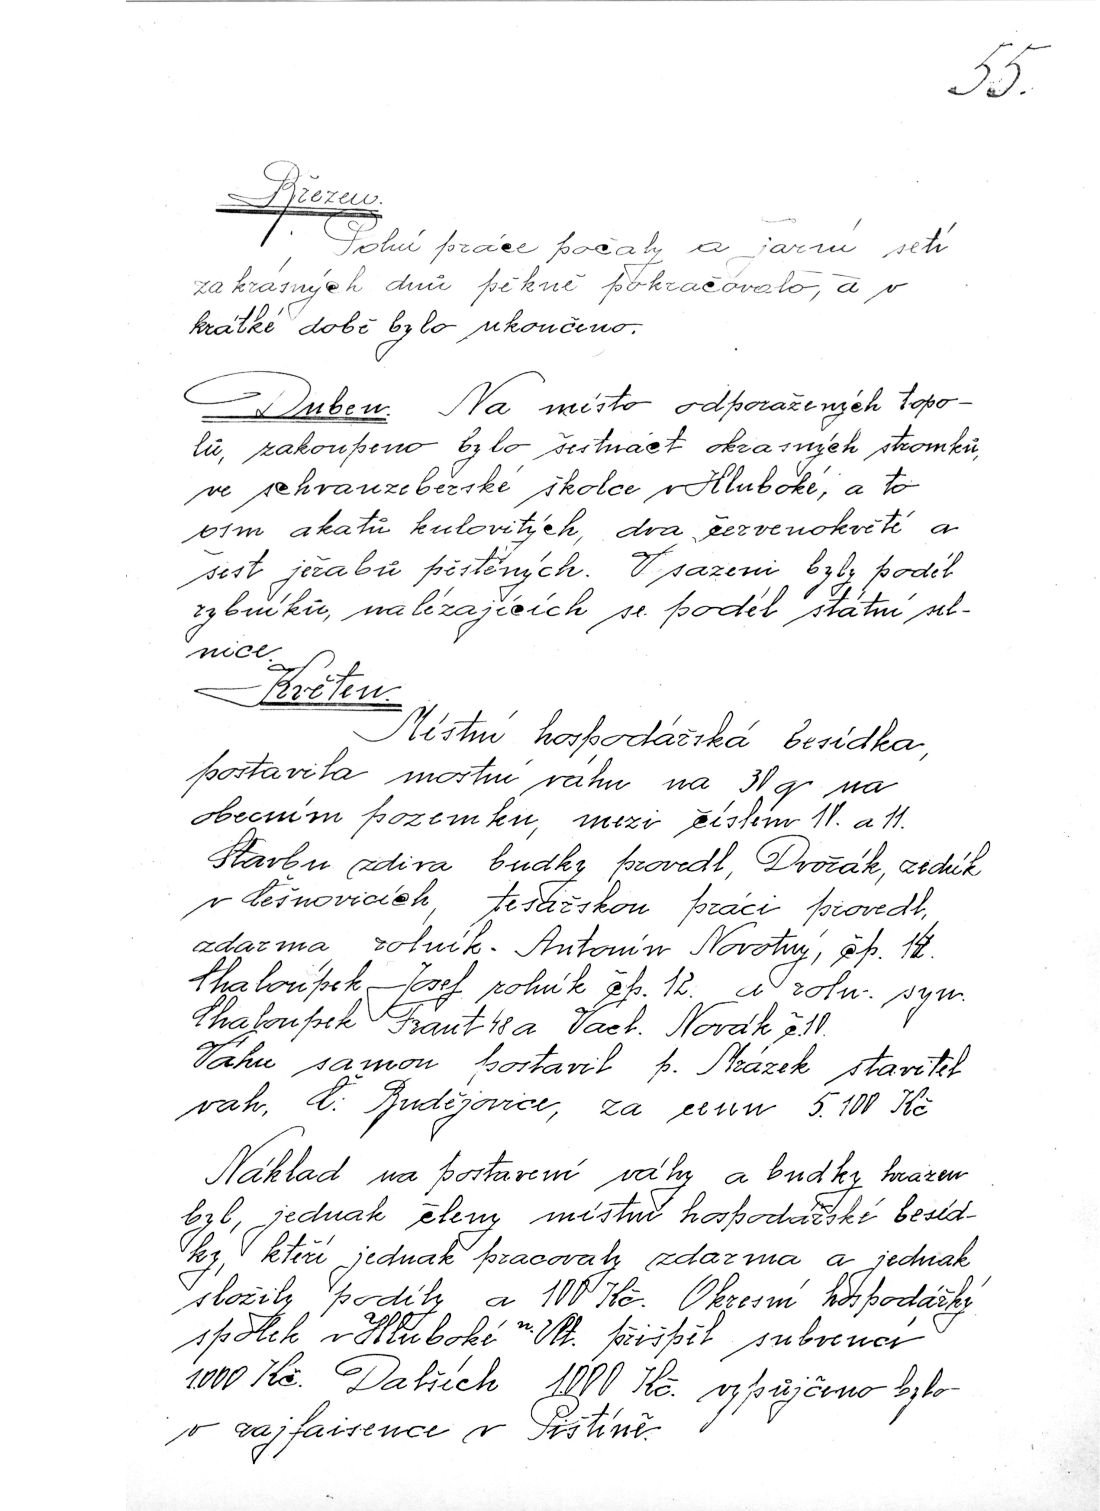 55.
Březen.
Polní práce počaly a jarní setí
za krásných dnů pěkně pokračovalo, a v
krátké době bylo ukončeno.
Duben. Na místo odporažených topo-
lů, zakoupeno bylo šestnáct okrasných stromků,
ve schvanzeberské školce v Hluboké, a to
osm akatů kulovitých, dva červenokvěté a
šest jeřabů pěstěných. V sazeni byly podél
rybníků, nalézajících se podél státní sil-
nice.
Květen.
Místní hospodářská besídka,
postavila mostní váhu na 30 q na
obecním pozemku, mezi číslem 10. a 11.
Stavbu zdiva budky provedl, Dvořák, zedník
v Češnovicích, tesařskou práci provedl,
zdarma, rolník. Antonín Novotný, čp. 14.
Chaloupek Josef rolník čp. 12. a roln. syn.
Chaloupek Frant a Vacl. Novák č 10.
Váhu samou postavil p. Mrázek stavitel
vah, Č. Budějovice, za cenu 5.100 Kč
Náklad na postavení váhy a budky hrazen
byl, jednak členy místní hospodářské besíd-
ky, kteří jednak pracovaly zdarma a jednak
složily podíly a 100 Kč. Okresní hospodářký
spolek v Hluboké n. Vlt. přispěl subvencí
1000 Kč. Dalších 1000 Kč. vypůjčeno bylo
v rajfaisence v Pištíně.